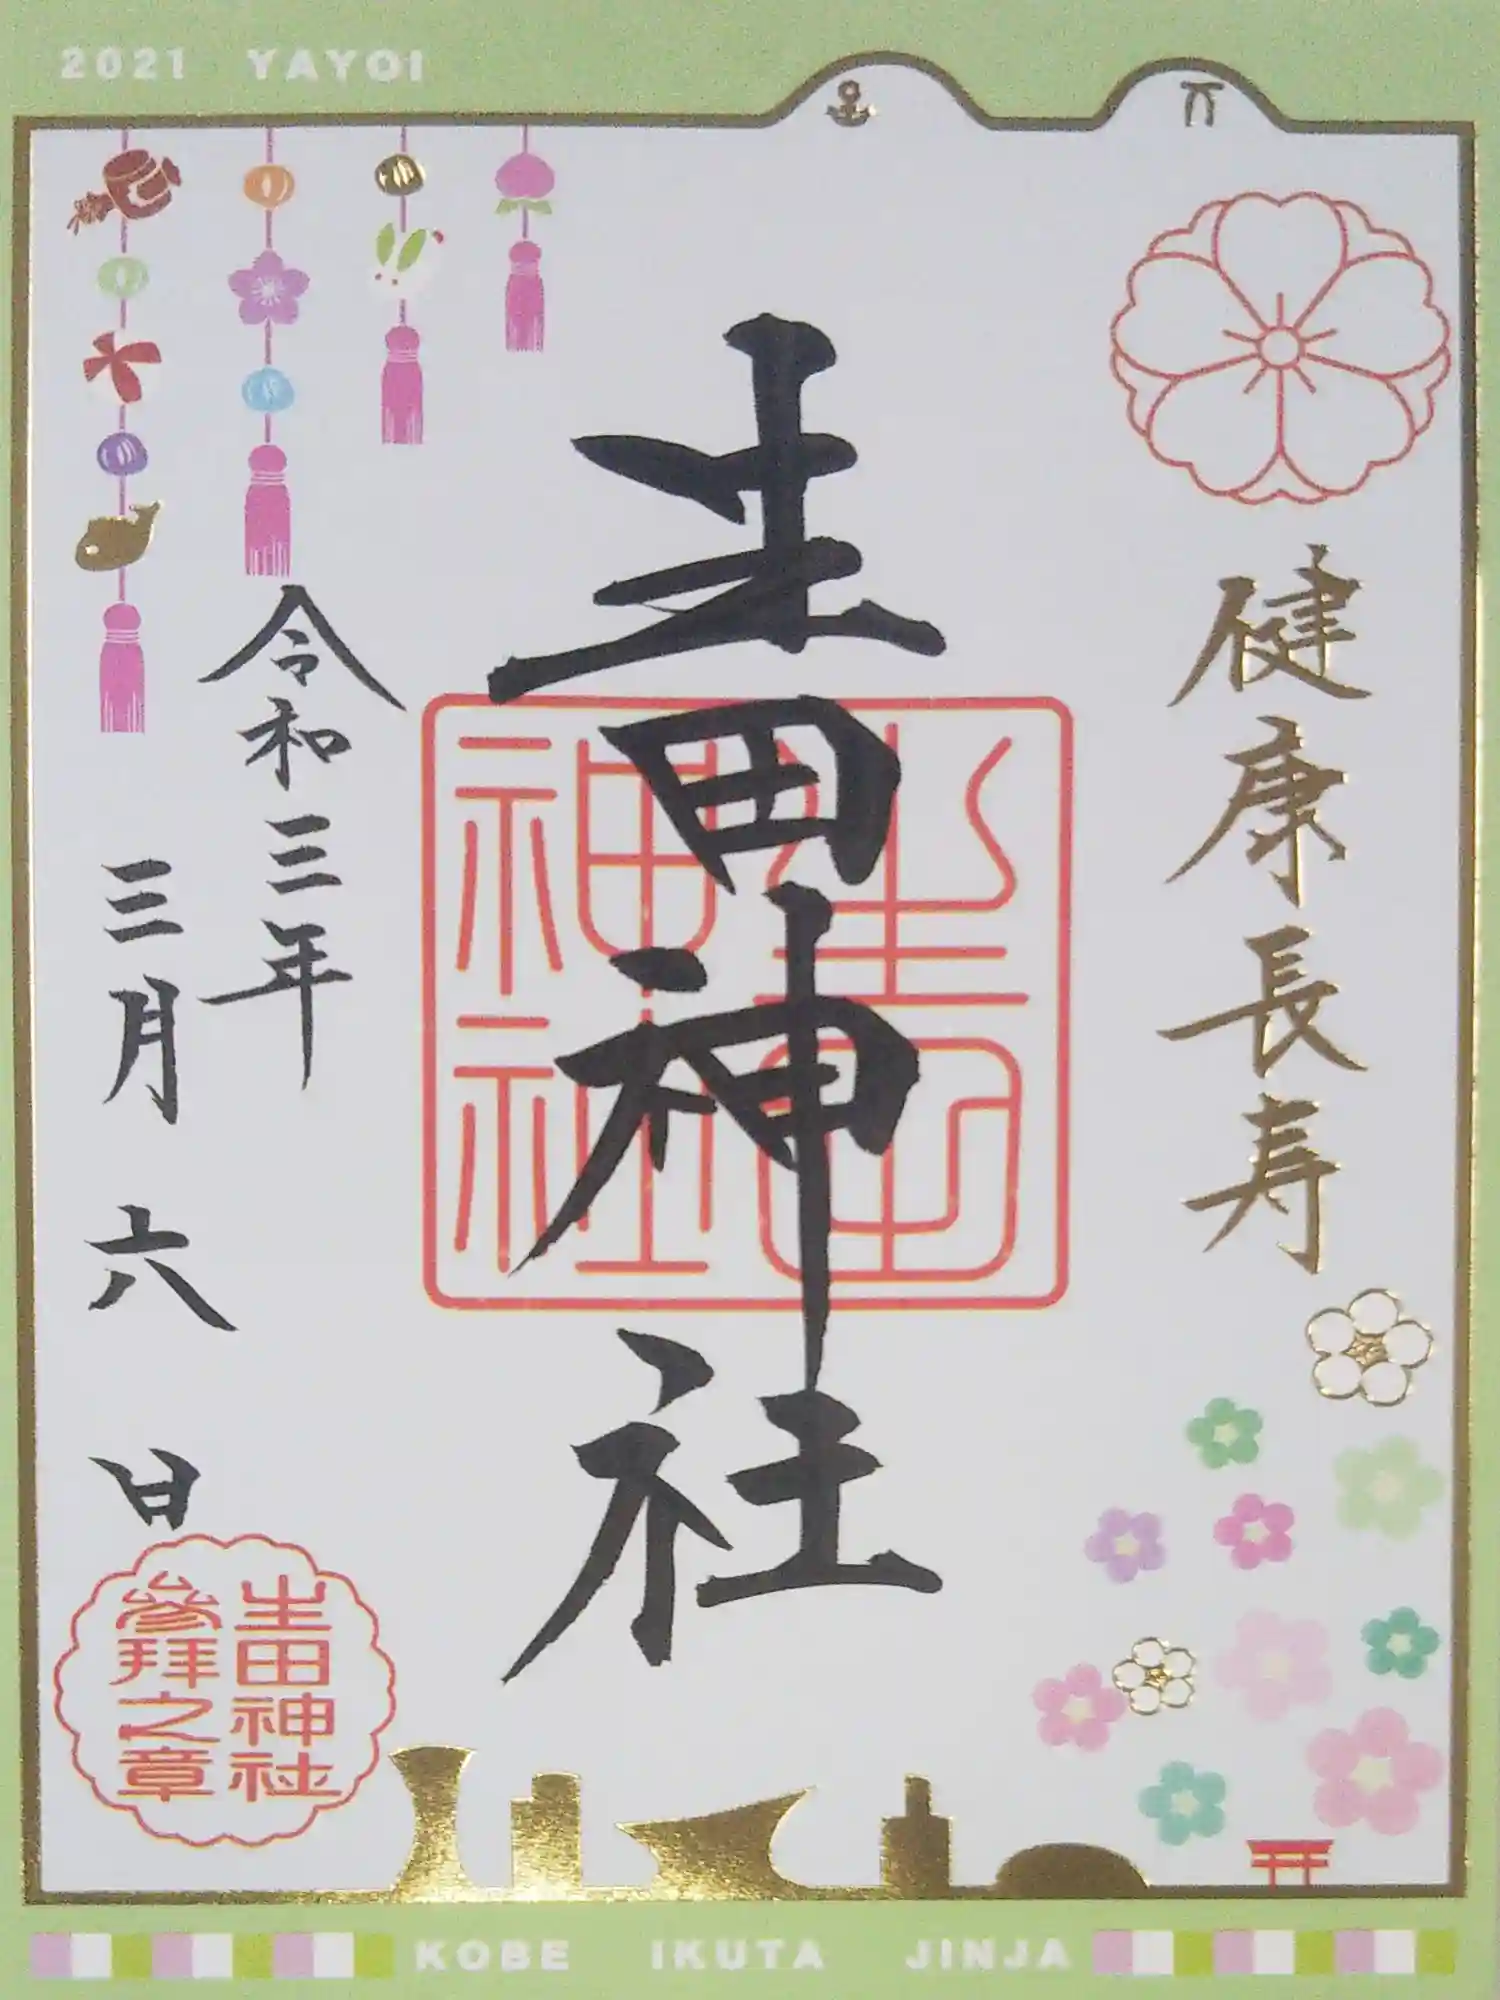 2021 YAYOI
健康長寿
生田神社
生田神社
令和三年
三月六日
生田神社
參拜之章
KOBE IKUTA JINJA